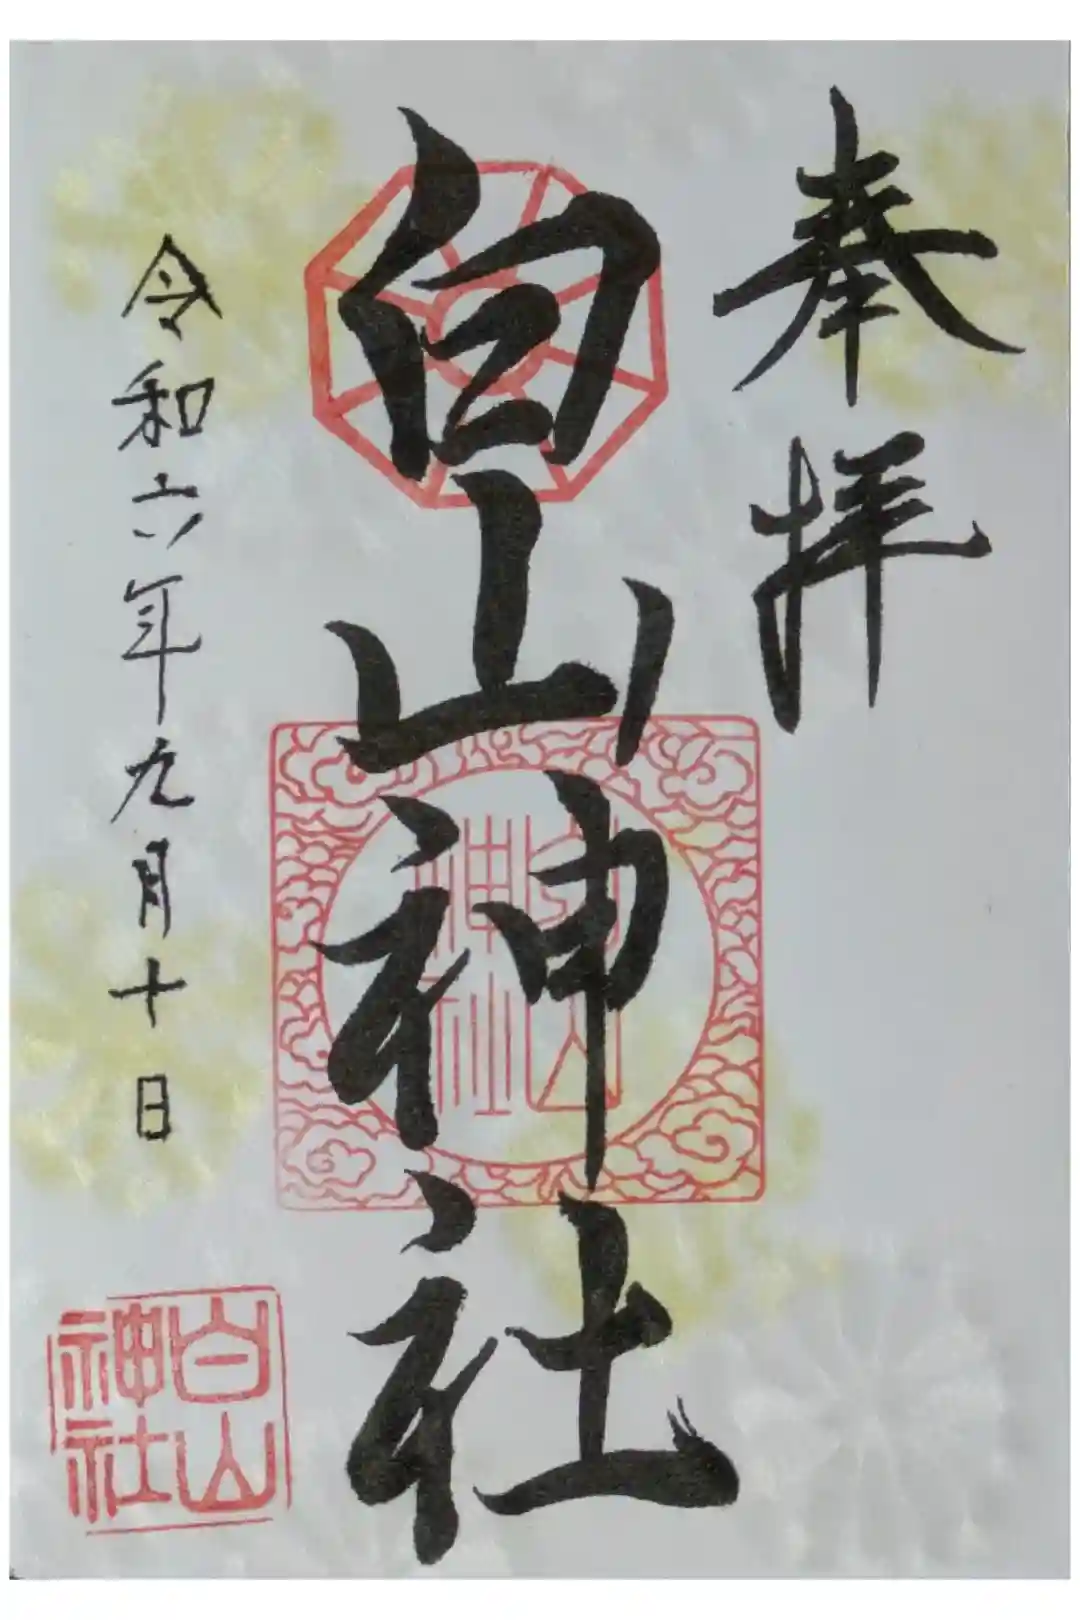 奉拝
白山神社
白山神社
令和六年九月十日
白山神社